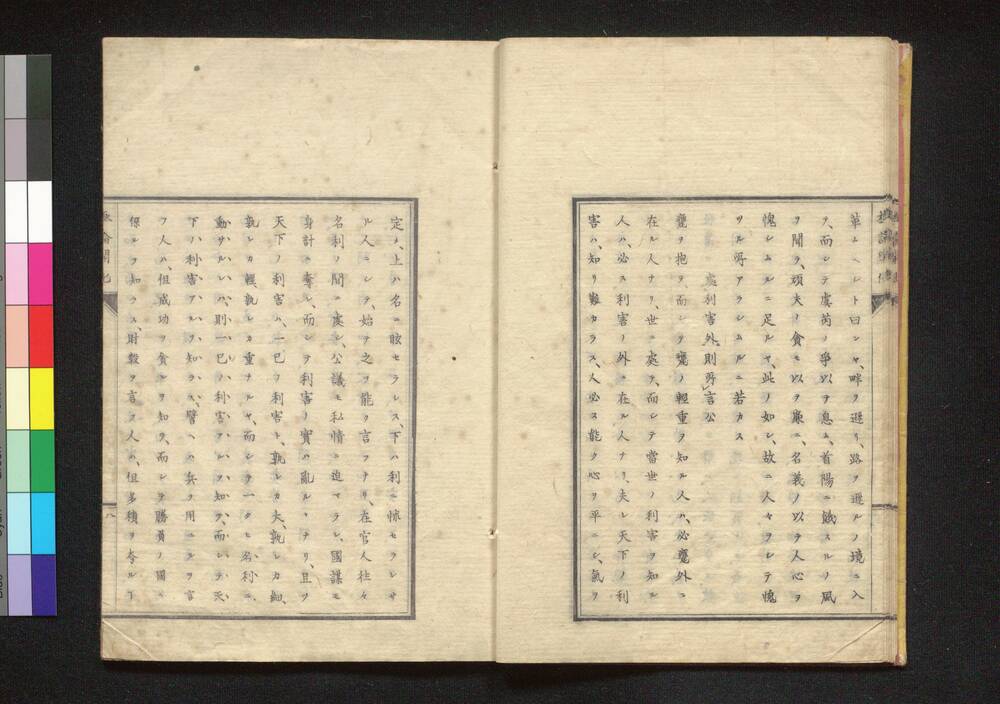 革ムヘシト曰シヤ、畔ヲ遜リ、路ヲ遜ルノ境ニ入
テ、而シテ虞芮ノ爭以テ息ム、首陽ニ餓スルノ風
ヲ聞テ、頑夫ノ貪モ以テ廉ニ、名義ノ以テ人心ヲ
愧シムルニ足ルヤ、此ノ如シ、故ニ人ヲシテ愧
ツル所アラシムルニ若カス
處利害外、則所言公
甕ヲ抱テ、而シテ甕ノ輕重ヲ知ル人ハ、必甕外ニ
在ル人ナリ、世ニ處テ、而シテ當世ノ利害ヲ知ル
人ハ、必ス利害ノ外ニ在ル人ナリ、夫レ天下ノ利
害ハ、知リ難カラス、人必ス能ク心ヲ平ニシ、氣ヲ
定メ、上ハ名ニ眩セラレス、下ハ利ニ怵セラレサ
ル人ニシテ、始テ之ヲ能ク言フナリ、在官人往々
名利ノ間ニ處シ、公議モ私情ニ迫マラレ、國謀モ
身計ニ奪レ、而シテ利害ノ實ハ亂ルヽナリ、且ツ
天下ノ利害ハ、一己ノ利害ト、孰レカ大、孰レカ細、
孰レカ輕、孰レカ重ナルヤ、而シテ一タヒ名利ニ
動サルレハ、則一己ノ利害アルヲ知テ、而シテ天
下ノ利害アルヲ知ラス、譬ヘハ兵ヲ用ニルヲ言
フ人ハ、但成功ヲ貪ルヲ知テ、而シテ勝負ノ圖ニ
保シヲ知ラス、財穀ヲ言フ人ハ、但多積ヲ夸ルヲ
八